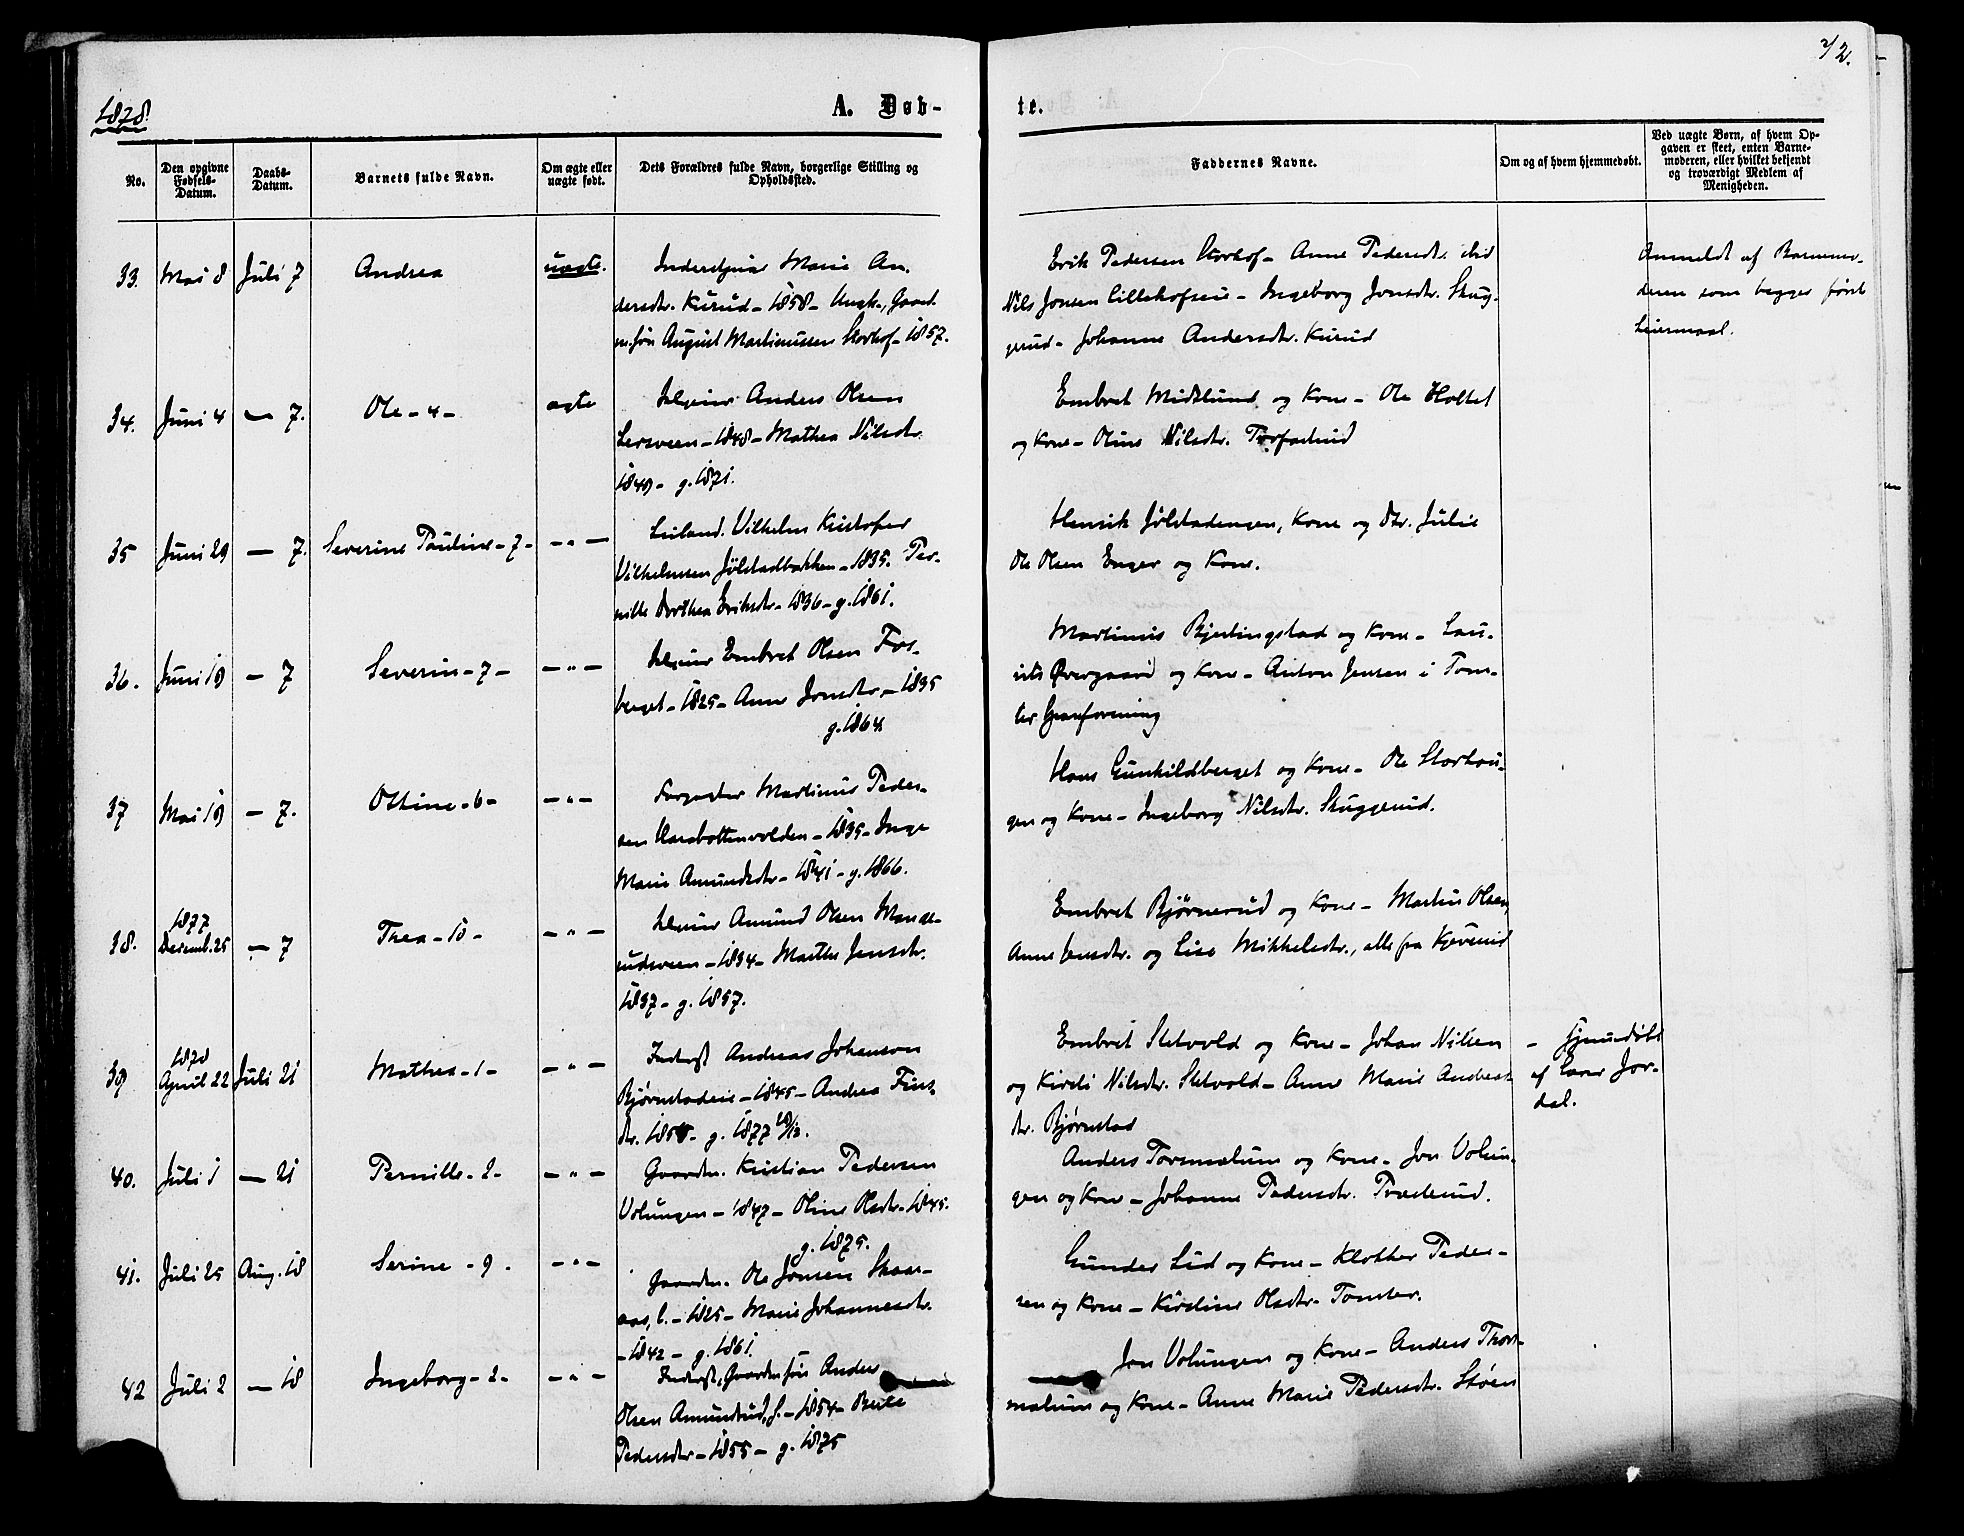 42.
1878.
A. Døb-
te.
No.
Den opgivne
Fødsels-
Datum.
Daabs-
Datum.
Barnets fulde Navn.
Om ægte eller
uægte født.
Dets Forældres fulde Navn, borgerlige Stilling og
Opholdssted.
Faddernes Navne.
Om og af hvem hjemmedøbt.
Ved uægte Børn, af hvem Op-
gaven er skeet, enten Barne-
moderen, eller hvilket bekjendt
og troværdigt Medlem af
Menigheden.
33. Mai 8 Juli 7 Andrea uægte.
Marie An-
dersdtr. Kurud - 1858 - Ungk., Gaard-
m.søn August Martinussen Storhof - 1857.
Erik Pedersen Storhof - Anne Pedersdtr. ibid
Nils Jonsen Lillehofseie - Ingeborg Jonsdtr. Skug-
gerud - Johanne Andersdtr. Kurud
Anmeldt af Barnemo-
deren som begges første
Leiermaal.
34. Juni 4 — 7. Ole - 4 - ægte
Selveier Anders Olsen
Lersveen - 1848 - Mathea Nilsdtr.
1849 - g. 1871.
Embret Midtlund og Kone - Ole Holtet
og Kone - Oline Nilsdtr.
35 Juni 29 — 7. Severine Pauline - 7 - - " -
Leiland. Vilhelm Kristofer
Vilhelmsen Jølstadbakken - 1835. Per-
nille Dorthea Eriksdtr - 1836 - g. 1861.
Henrik Jølstadengen, Kone og Dtr. Julie
Ole Olsen Enger og Kone.
36. Juni 19 — 7 Severin - 7 - - " -
Selveier Embret Olsen Fos-
berget - 1825 - Anne Jonsdtr. - 1835
g. 1864.
Martinus Bjertingstad og Kone - Lau-
rits Øvergaard og Kone - Anton Jensen i Tom-
ter
37 Mai 19 — 7. Oltine - 6 - - " -
Forpagter Martinus Peder-
sen Harabottenvolden - 1835 - Inge
Marie Amundsdtr - 1841 - g. 1866.
Hans Gunhildberget og Kone - Ole Storhau-
gen og Kone - Ingeborg Nilsdtr. Skuggerud.
38. 1877
Decemb. 25 — 7 Thea - 10 - - " -
Selveier Amund Olsen
- 1834 - Marthe Jensdtr.
1837 - g. 1857.
Embret Bjørnerud og Kone - Martin Olsen,
Anne Jensdtr. og Lise Mikkelsdtr., alle fra Kjeverud
39 1878
April 22 Juli 21 Mathea - 1 - - " -
Inderst Andreas Johansen
Bjørnstadeie - 1845 - Andrea Fins-
dtr. 1855 - g. 1877
Embret Sletvold og Kone - Johan Nilsen
og Kirsti Nilsdtr. Sletvold - Anne Marie Anders-
dtr. Bjørnstad
- Hjemdøbt
af Lars Jor-
dal.
40. Juli 1 — 21 Pernille - 2 - - " -
Gaardm. Kristian Pedersen
Volungen - 1847 - Oline Olsdtr. - 1845.
g. 1875.
Anders Torsmælum og Kone - Jon Volun-
gen og Kone - Johanne Pedersdtr. Træderud.
41. Juli 25 Aug. 18 Serine - 9 - - " -
Gaardm. Ole Jonsen Skaar-
aas, l. - 1825 - Marie Johannesdtr.
- 1842 - g. 1861.
Gunder Lid og Kone - Klokker Peder-
sen og Kone - Kirstine Olsdtr. Tomter.
42 Juli 2 — 18 Ingeborg - 2 - - " -
Inderst, Gaardm.søn Anders
Olsen Amundrud, - 1854 - Berte
Pedersdtr - 1855 - g. 1875
Jon Volungen og Kone - Anders Thors-
mælum og Kone - Anne Marie Pedersdtr. Støen